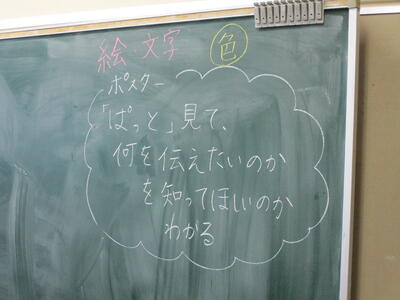 絵・文字 色
ポスター
「ぱっと」見て、
何を伝えたいのか
を知ってほしいのか
わかる